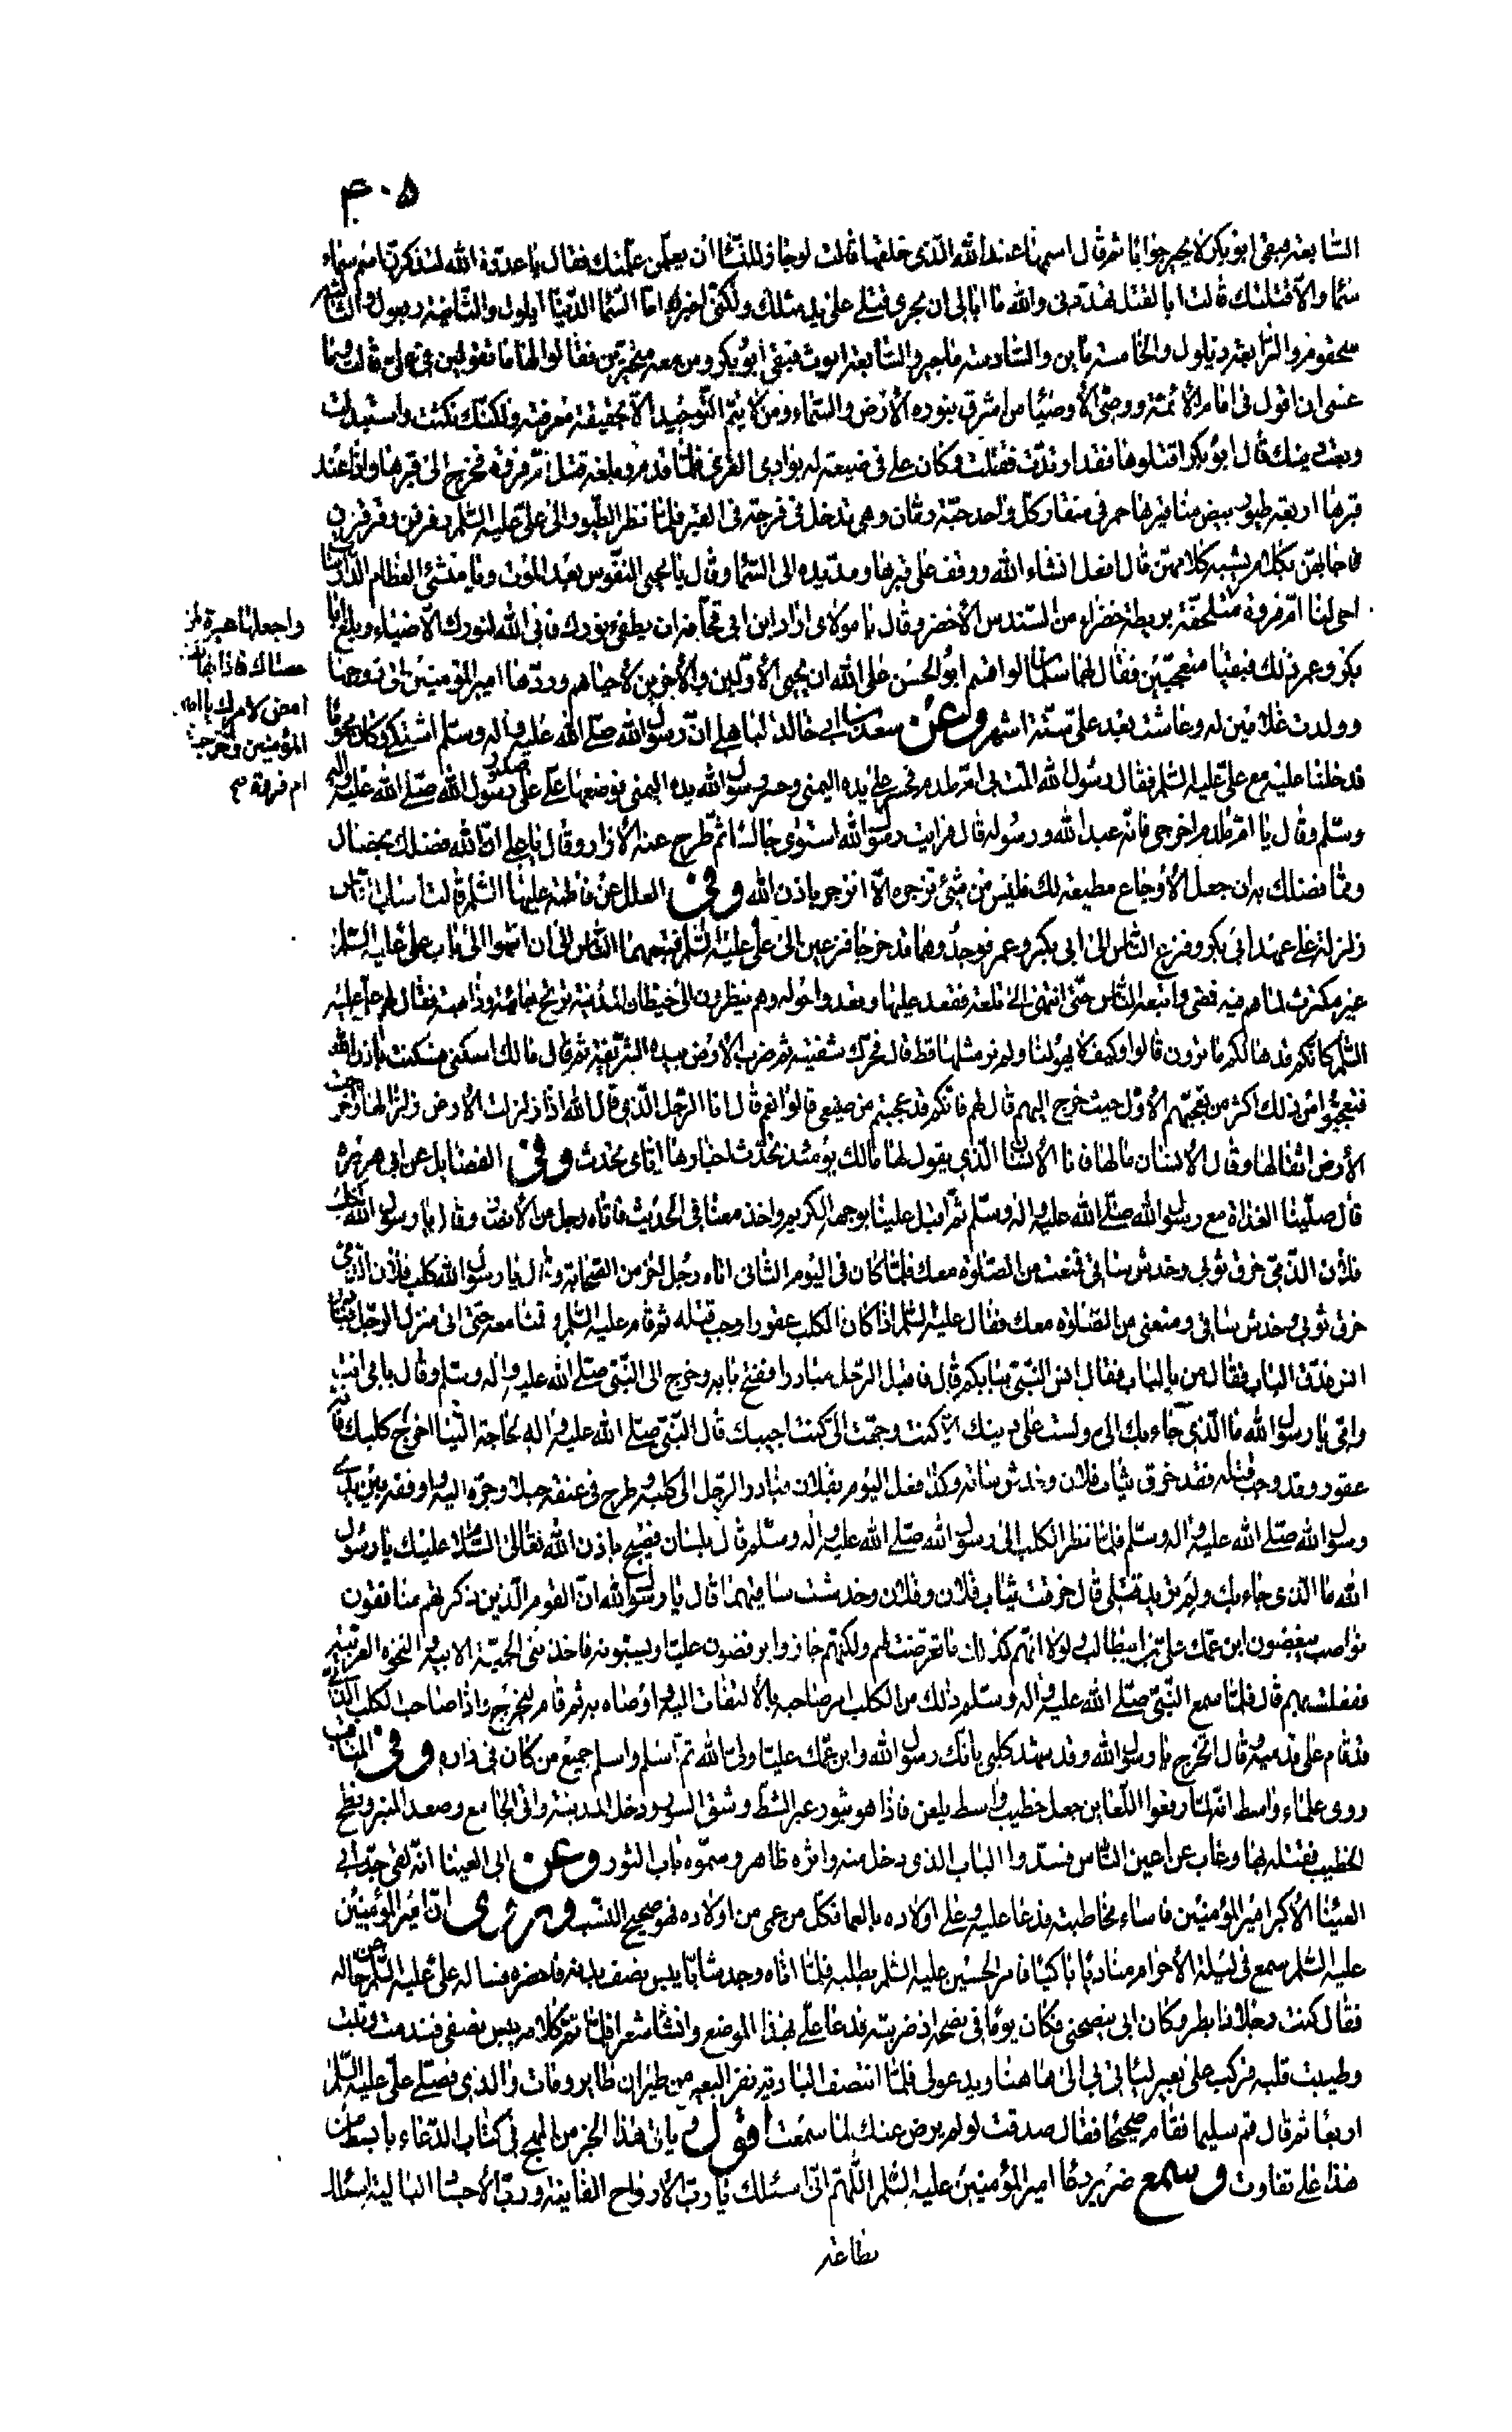 ٣٠٥
السابعة فبقى ابو بكر لا يحير جوابا ثم قال اسمها عند الله الذى خلقها قالت لو جاز للنساء ان يعلمن علمتك فقال يا عدوة الله لتذكرن اسم سماء
سماء والا قتلتك قالت ابا لقتل تهددنى والله ما ابالى ان يجرى قتلى على يد مثلك ولكنى اخبرك اما السماء الدنيا ايلول والثانية ربعول والثالثة
سحقوم والرابعة ذيلول والخامسة ماين والسادسة ماجير والسابعة ايوث فبقى ابو بكر ومن معه متحيرين فقالوا لها ما تقولين فى على قالت وما
عسى ان اقول فى امام الائمة ووصى الاوصياء من اشرق بنوره الارض والسماء ومن لا يتم التوحيد الا بحقيقة معرفته ولكنك نكثت واستبدلت
وبعت دينك قال ابو بكر اقتلوها فقد ارتدت فقتلت وكان على فى ضيعة له بوادى القرى فلما قدم وبلغه قتل ام فروة فخرج الى قبرها واذا عند
قبرها اربعة طيور بيض مناقيرها حمر فى منقار كل واحد حبة رمان وهى تدخل فى فرجة فى القبر فلما نظر الطيور الى على عليه السلم رفرفن وقرقرن
فاجابهن بكلام يشبه كلامهن قال افعل انشاء الله ووقف على قبرها ومد يده الى السماء وقال يا محيى النفوس بعد الموت ويا منشئ العظام الدارسات
احى لنا ام فروة واجعلها عبرة لمن عصاك فاذا بهاتف امض لامرك يا امير المؤمنين وخرجت ام فروة متلحفة بريطة خضراء من السندس الاخضر وقال يا مولاى اراد ابن ابى قحافة ان يطفئ نورك فابى الله لنورك الا ضياء وبلغ ابا
بكر وعمر ذلك فبقيا متعجبين فقال لهما سلمان لو اقسم ابو الحسن على الله ان يحيى الاولين والاخرين لاحياهم وردها امير المؤمنين الى زوجها
وولدت غلامين له وعاشت بعد على ستة اشهر وعن سعد بن ابى خالد الباهلى ان رسول الله صلى الله عليه واله وسلم اشتكى وكان محموما
فدخلنا عليه مع على عليه السلم فقال رسول الله المت بى ام ملدم فحسر على يده اليمنى وحسر رسول الله يده اليمنى فوضعها على على صدر رسول الله صلى الله عليه واله
وسلم وقال يا ام ملدم اخرجى فانه عبد الله ورسوله قال فرايت رسول الله استوى جالسا ثم طرح عنه الازار وقال يا على ان الله فضلك بخصال
ومما فضلك به ان جعل الاوجاع مطيعة لك فليس من شئ تزجره الا انزجر باذن الله وفى العلل عن فاطمة عليها السلم قالت اصاب الناس
زلزلة على عهد ابى بكر وفزع الناس الى ابى بكر وعمر فوجدوهما قد خرجا فزعين الى على عليه السلم فتبعهما الناس الى ان انتهوا الى باب على عليه السلم
غير مكترث لما هم فيه فمضى واتبعه الناس حتى انتهى الى تلعة فقعد عليها وقعدوا حوله وهم ينظرون الى حيطان المدينة ترتج جائية وذاهبة فقال لهم على عليه
السلم كانكم قد هالكم ما ترون قالوا وكيف لا يهولنا ولم نر مثلها قط قال فحرك شفتيه ثم ضرب الارض بيده الشريفة ثم قال مالك اسكنى فسكنت باذن الله
فتعجبوا من ذلك اكثر من تعجبهم الاول حيث خرج اليهم قال لهم فانكم قد عجبتم من صنيعى قالوا نعم قال انا الرجل الذى قال الله اذا زلزلت الارض زلزالها واخرجت
الارض اثقالها وقال الانسان مالها فانا الانسان الذى يقول لها مالك يومئذ تحدث اخبارها اياى تحدث وفى الفضايل عن ابى هريرة
قال صلينا الغداة مع رسول الله صلى الله عليه واله وسلم ثم اقبل علينا بوجهه الكريم واخذ معنا فى الحديث فاتاه رجل من الانصار وقال يا رسول الله كلب
فلان الذمى خرق ثوبى وخدش ساقى فمنعت من الصلوة معك فلما كان فى اليوم الثانى اتاه رجل اخر من الصحابة وقال يا رسول الله كلب فلان الذمى
خرق ثوبى وخدش ساقى ومنعنى من الصلوة معك فقال عليه السلم اذا كان الكلب عقورا وجب قتله ثم قام عليه السلم وقمنا معه حتى اتى منزل الرجل فبادر
انس فدق الباب فقال من بالباب فقال انس النبى ببابكم قال فاقبل الرجل مبادرا ففتح بابه وخرج الى النبى صلى الله عليه واله وسلم وقال بابى انت
وامى يا رسول الله ما الذى جاء بك الى ولست على دينك الا كنت وجهت الى كنت اجيبك قال النبى صلى الله عليه واله لحاجة الينا اخرج كلبك فانه
عقور وقد وجب قتله فقد خرق ثياب فلان وخدش ساقه وكذا فعل اليوم بفلان فبادر الرجل الى كلبه وطرح فى عنقه حبلا وجره اليه واوقفه بين يدى
رسول الله صلى الله عليه واله وسلم فلما نظر الكلب الى رسول الله صلى الله عليه واله وسلم قال بلسان فصيح باذن الله تعالى السلام عليك يا رسول
الله ما الذى جاء بك ولم تريد قتلى قال خرقت ثياب فلان وفلان وخدشت ساقيهما قال يا رسول الله ان القوم الذين ذكرتهم منافقون
نواصب يبغضون ابن عمك على بن ابيطالب ولولا انهم كذلك ما تعرضت لهم ولكنهم جازوا يرفضون عليا ويسبونه فاخذتنى الحمية الابية والنخوة العربية
ففعلت بهم قال فلما سمع النبى صلى الله عليه واله وسلم ذلك من الكلب امر صاحبه بالالتفات اليه واوصاه به ثم قام ليخرج واذا صاحب الكلب الذمى
قد قام على قدميه وقال اتخرج يا رسول الله وقد شهد كلبى بانك رسول الله وابن عمك عليا ولى الله ثم اسلم واسلم جميع من كان فى داره وفى المناقب
روى علماء واسط انه لما رفعوا اللعاين جعل خطيب واسط يلعن فاذا هو بثور عبر الشط وشق السور ودخل المدينة واتى الجامع وصعد المنبر ونطح
الخطيب فقتله بها وغاب عن اعين الناس فسدوا الباب الذى دخل منه واثره ظاهر وسموه باب الثور وعن ابى العينا انه لقى جد ابى
العينا الاكبر امير المؤمنين فاساء مخاطبته فدعا عليه وعلى اولاده بالعما فكل من عمى من اولاده فهو صحيح النسب وروى ان امير المؤمنين
عليه السلم سمع فى ليلة الاحرام مناديا باكيا فامر الحسين عليه السلم بطلبه فلما اتاه وجد شابا يبس نصف بدنه فاحضره فساله على عليه السلم عن حاله
فقال كنت رجلا ذا بطر وكان ابى ينصحنى فكان يوما فى نصحه اذ ضربته فدعا على بهذا الموضع وانشا شعرا فلما تم كلامه يبس نصفى فندمت وتبت
وطيبت قلبه فركب على بعير لياتى بى الى ها هنا ويدعو لى فلما انتصف البادية نفر البعير من طيران طاير ومات والدى فصلى على عليه السلم
اربعا ثم قال قم سليما فقام صحيحا فقال صدقت لو لم يرض عنك لما سمعت اقول وياتى هذا الخبر من المهج فى كتاب الدعاء بابسط من
هذا على تفاوت وسمع ضرير دعا امير المؤمنين عليه السلم اللهم انى اسئلك يا رب الارواح الفانية ورب الاجساد البالية اسئلك
بطاعة